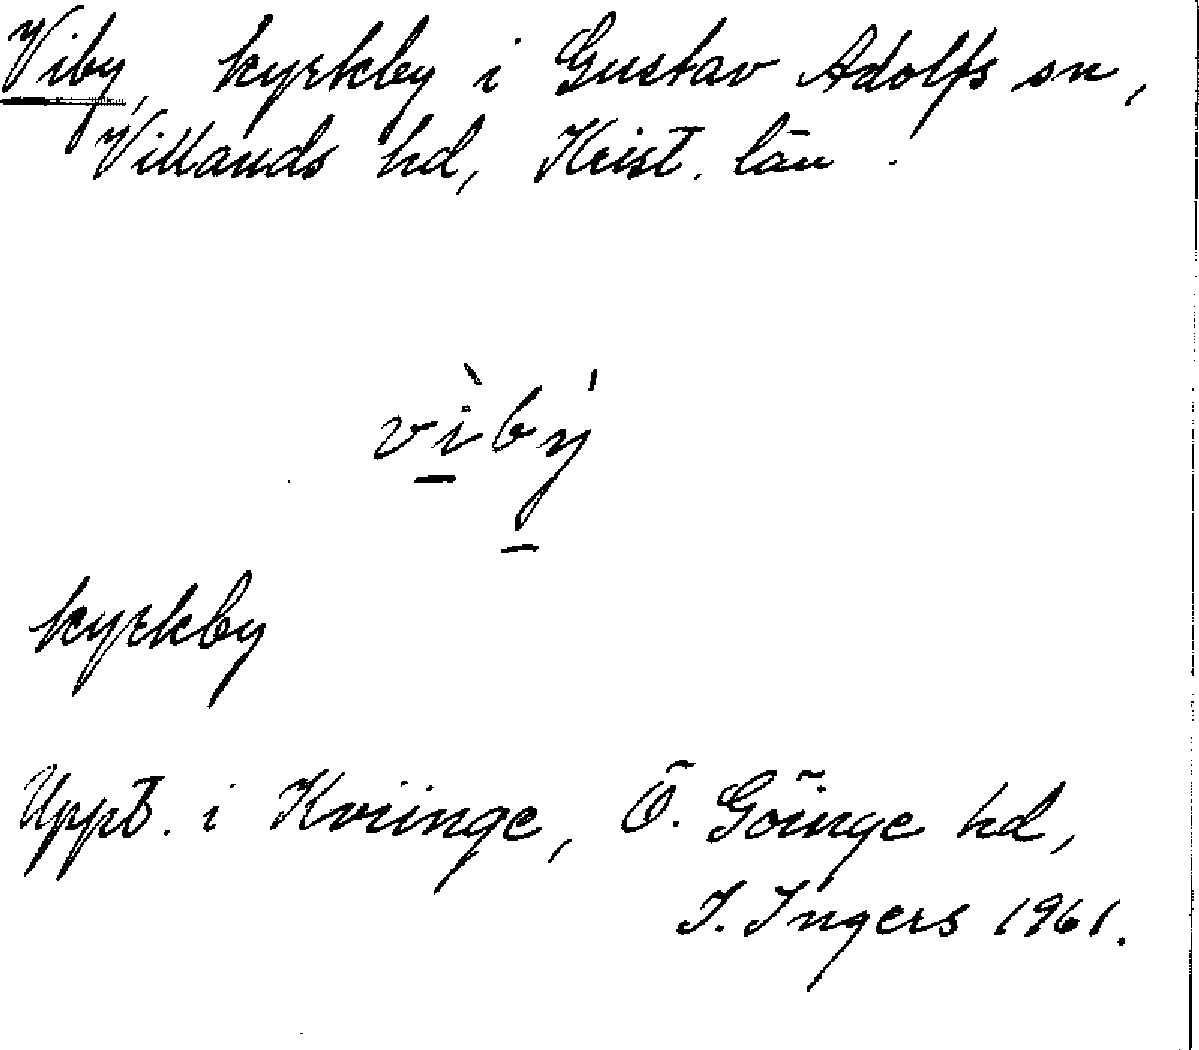 Viby, kyrkby i Gustav Adolfs sn,
Villands hd, Krist. län.
vìbý
kyrkby
Uppt. i Kviinge, Ö. Göinge hd,
I. Ingers 1961.